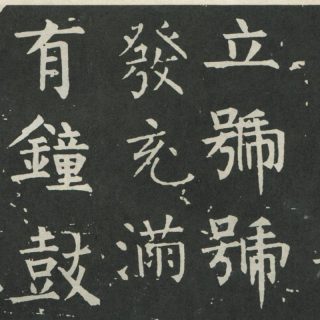 立號號
發充滿
有鐘鼓